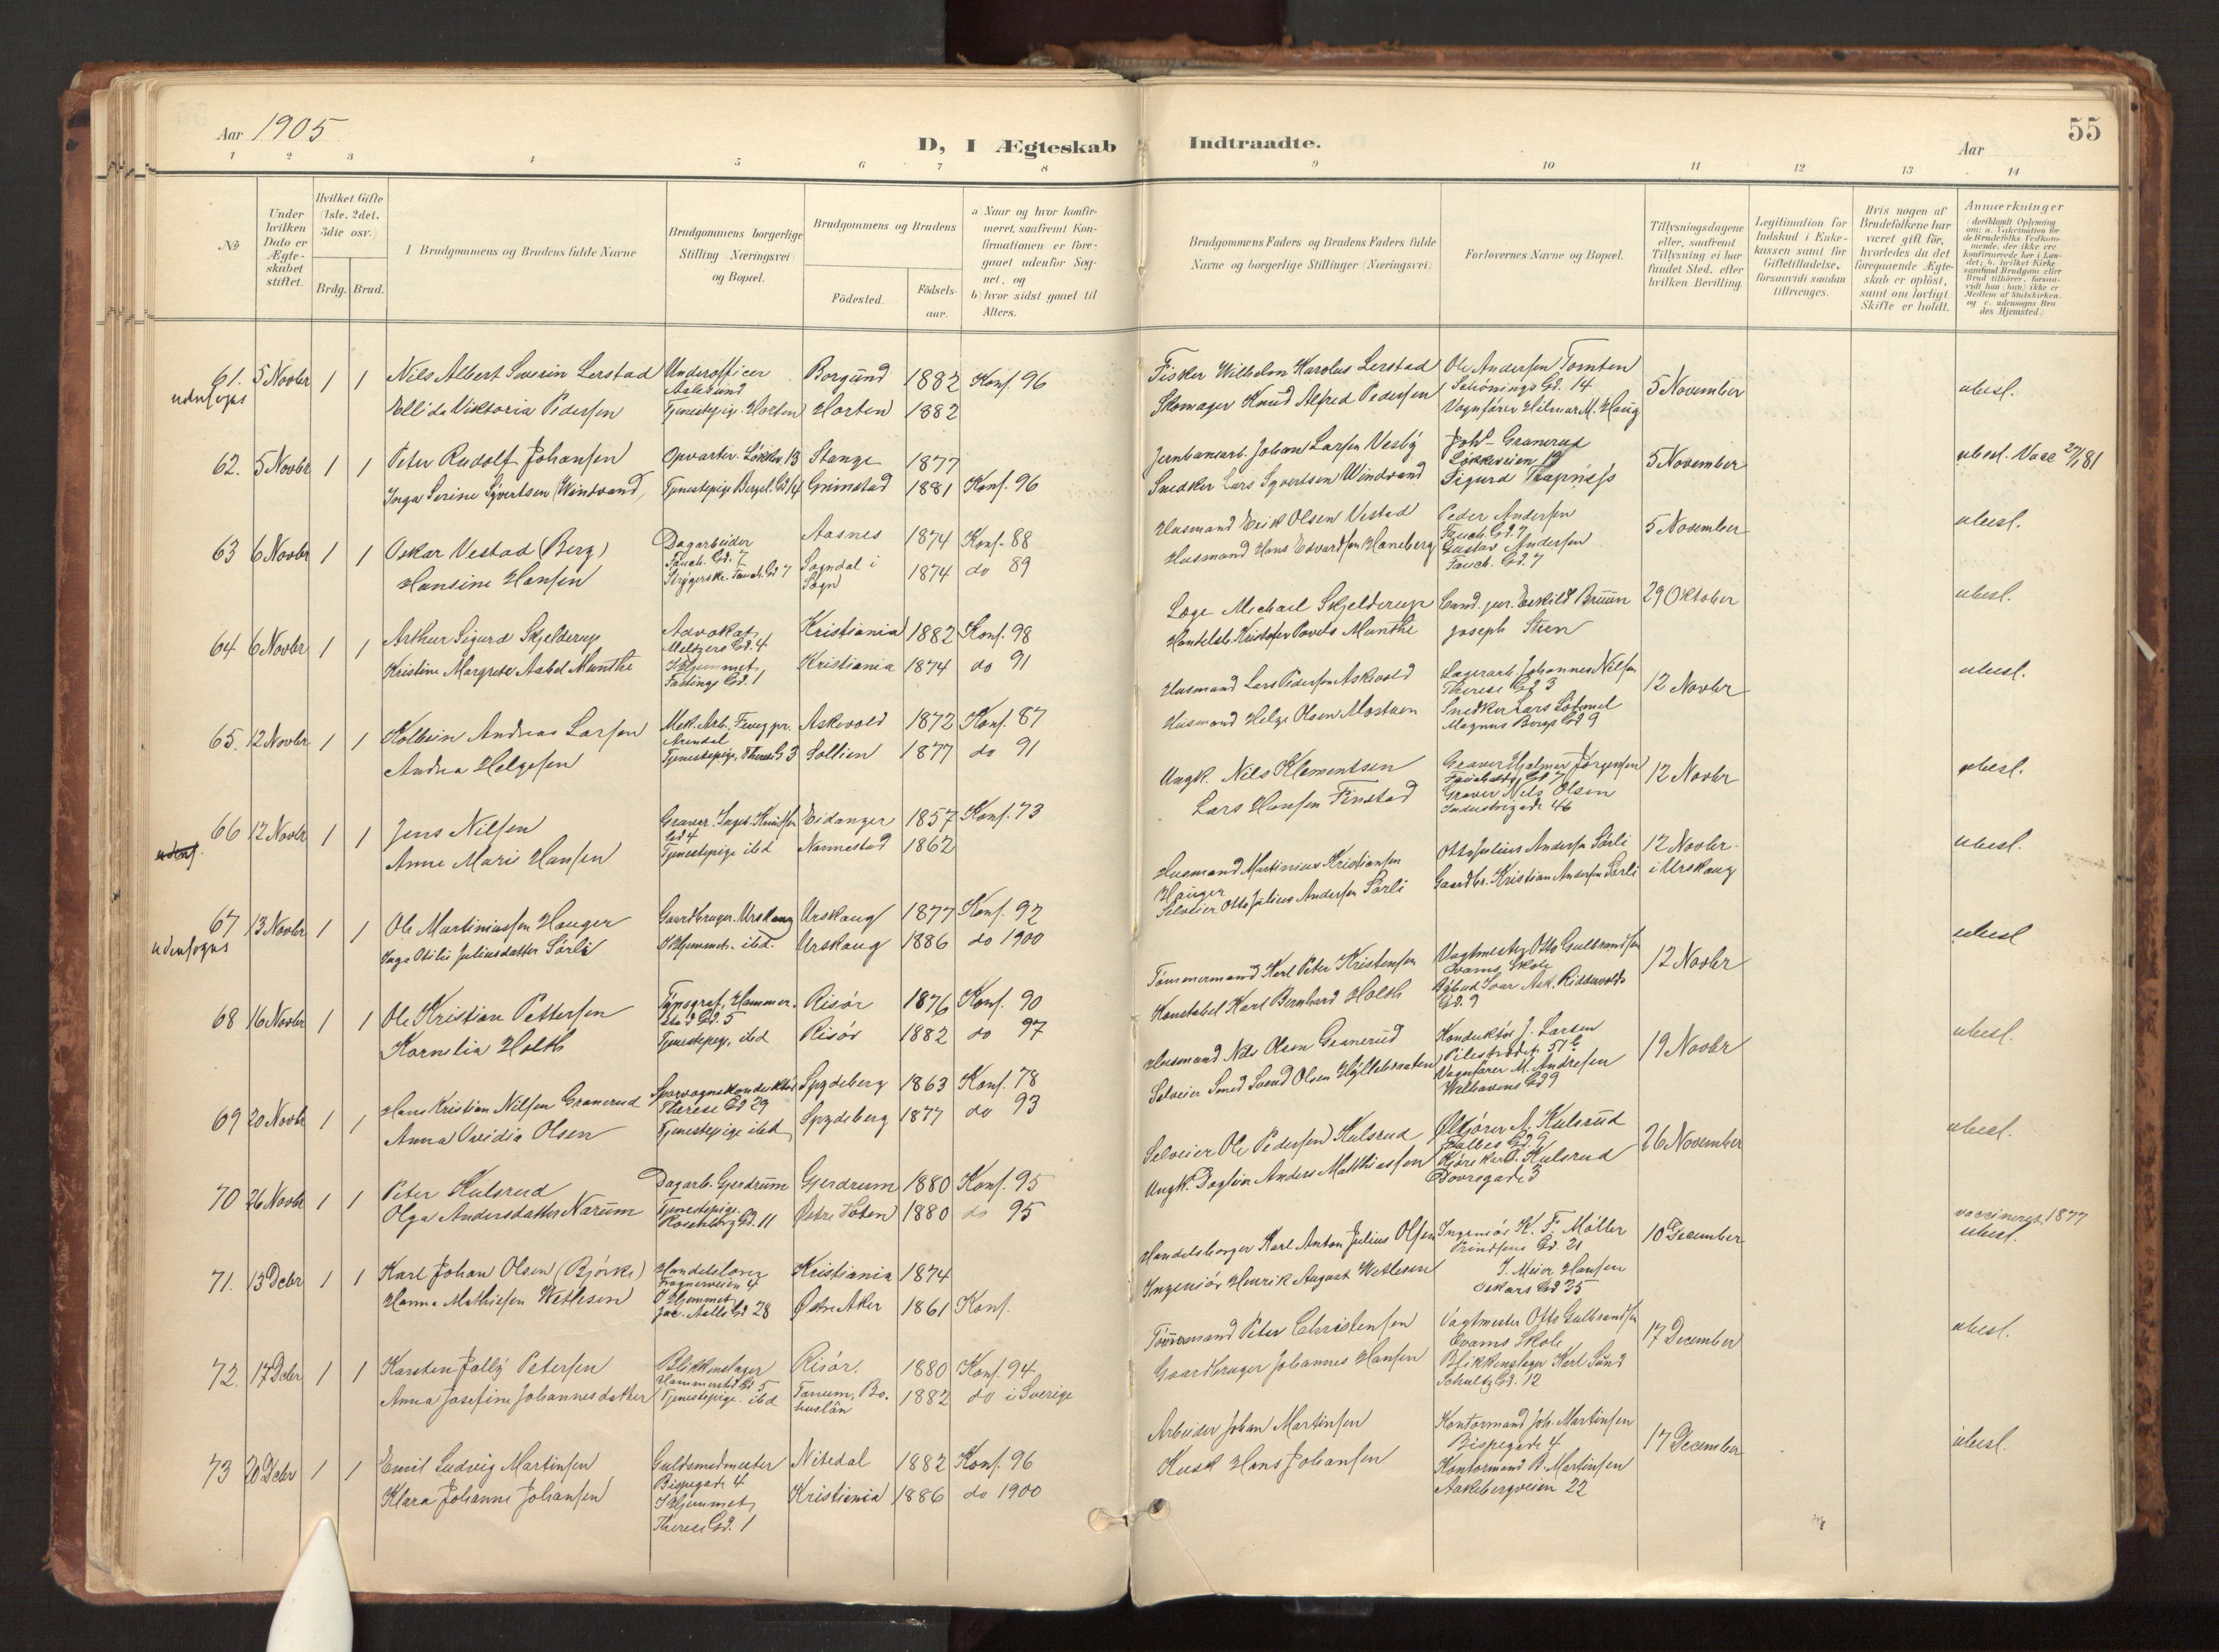 Aar 1905
D, I Ægteskab Indtraadte.
Aar
55
1 2 3 4 5 6 7 8 9 10 11 12 13 14
No
Under hvilken Dato er Ægteskabet stiftet.
Hvilket Gifte (1ste, 2det, 3die osv.)
Brdg. Brud.
I Brudgommens og Brudens fulde Navne
Brudgommens borgerlige Stilling (Næringsvei) og Bopæl.
Brudgommens og Brudens
Fødested.
Fødselsaar.
a) Naar og hvor konfirmeret, saafremt Konfirmationen er foregaaet udenfor Sognet, og
b) hvor sidst gaaet til Alters.
Brudgommens Faders og Brudens Faders fulde Navne og borgerlige Stillinger (Næringsvei)
Forlovernes Navne og Bopæl.
Tillysningsdagene eller, saafremt Tillysning ei har fundet Sted, efter hvilken Bevilling.
Legitimation for Indskud i Enkekassen samt for Giftetilladelse, forsaavidt saadan tiltrænges.
Hvis nogen af Brudefolkene har været gift før, hvorledes da det foregaaende Ægteskab er opløst, samt om lovligt Skifte er holdt.
Anmærkninger
(deriblandt Oplysning om: a. Vakcination for de Brudefolks Vedkommende, der ikke ere konfirmerede her i Landet; b. hvilket Kirkesamfund Brudgom eller Brud tilhører, forsaavidt han (hun) ikke er Medlem af Statskirken, og c. udensogns Brudes Hjemsted.)
61. 5 Novbr 1 1 Nils Albert Severin Lerstad Underofficer Aalesund Borgund 1882 Konf. 96 Fisker Wilhelm Karolus Lerstad Ole Andersen Tomten Schønings Gd. 14 5 November ubesl.
udensogns Ellida Viktoria Pedersen Tjenestepige Horten Horten 1882 Skomager Knud Alfred Pedersen Vognfører Hilmar M. Haug
62. 5 Novbr 1 1 Peter Rudolf Johansen Opvarter. Løkkev. 13 Stange 1877 Jernbanearb. Johan Larsen Vesby Joh. Granerud Løkkeveien 19 5 November ubesl. Vacc 81
Inga Serine Syvertsen (Windvand) Tjenestepige Bergsl. Gd 14 Grimstad 1881 Konf. 96 Snedker Lars Syvertsen Windvand Sigurd Trapness
63 6 Novbr 1 1 Oskar Vestad (Berg) Dagarbeider Fauch. Gd. 7 Aasnes 1874 Konf. 88 Husmand Erik Olsen Vestad Peder Andersen Fauch. Gd. 7 5 November ubesl.
Hansine Hansen Strygerske Fauch. Gd 7 Sogndal i Sogn 1874 do 89 Husmand Hans Edvardsen Haneberg Gustav Andersen Fauch. Gd. 7
64 6 Novbr 1 1 Arthur Sigurd Skjelderup Advokat, Meltzers Gd. 4 Kristiania 1882 Konf. 98 Læge Michael Skjelderup Cand. jur. Eskild Bruun 29 Oktober ubesl.
Kristine Margrete Aabel Munthe I Hjemmet, Fastings Gd. 1 Kristiania 1874 do 91 Handelsb. Kristofer Povels Munthe Joseph Steen
65. 12 Novbr 1 1 Kolbein Andreas Larsen Mek. Arb. Arendal Askevold 1872 Konf. 87 Husmand Lars Pedersen Askevold Lagerarb. Johannes Nilsen Therese Gd 3 12 Novbr ubesl.
Andrea Helgesen Tjenestepige, Therese G 3 Sollien 1877 do 91 Husmand Helge Olsen Mostuen Snedker Lars Magnus Bergs Gd 9
66 12 Novbr 1 1 Jens Nilsen Graver. Inge. Knudsen Gd 4 Eidanger 1857 Konf. 73 Ungk. Nils Klementsen Graver Hjalmar Jørgensen 12 Novbr ubesl.
Anne Marie Hansen Tjenestepige ibd Nannestad 1862 Lars Hansen Finstad Graver Nels Olsen Industrigade 46
67 13 Novbr 1 1 Ole Martiniussen Hauger Gaardbruger. Urskaug Urskaug 1877 Konf. 92 Husmand Martinius Kristiansen Hauger Otto Julius Andersen Sørli 12 Novbr. ubesl.
udensogns Inga Otilie Juliusdatter Sørli I Hjemmet. ibd. Urskaug 1886 do 1900 Selveier Otto Julius Andersen Sørli Gaardbr. Kristian Andersen Sørli i Urskaug
68 16 Novbr 1 1 Ole Kristian Pettersen Typograf, Hammerstad Gd. 5 Risør 1876 Konf. 90 Tømmermand Karl Peter Kristensen Vagtmester Otto Gulbrandsen Svams Skole 12 Novbr ubesl
Kornelia Holth Tjenestepige, ibd Risør 1882 do 97 Konstabel Karl Bernhard Holth Ask. Riddervolds Gd. 9
69 20 Novbr 1 1 Hans Kristian Nilsen Granerud Sporvognskonduktør Therese Gd 29 Spydeberg 1863 Konf. 78 Husmand Nils Olsen Granerud Konduktør J. Larsen Pilestrædet 51 19 Novbr ubesl.
Anna Ovidia Olsen Tjenestepige ibd Spydeberg 1877 do 93 Selveier Smed Svend Olsen Hyllebraaten Vognfører M. Andresen Welhavens Gd 9
70 26 Novbr 1 1 Peter Kulsrud Dagarb. Gjerdrum Gjerdrum 1880 Konf. 95 Selveier Ole Pedersen Kulsrud Ølkjører A. Kulsrud Falbes Gd. 9 26 November ubesl.
Olga Andersdatter Narum Tjenestepige. Rosenborg Gd. 11 Østre Toten 1880 do 95 Ungk. Dagleier Anders Matthiassen Kulsrud Dovregade 3
71. 13 Dcbr 1 1 Karl Johan Olsen (Bjørke) Frognerveien 4 Kristiania 1874 Handelsborger Karl Anton Julius Olsen Ingeniør K. F. Møller Prinsens Gd. 21 10 December vaccineret 1877 ubesl.
Hanna Mathiesen Wetlesen I Hjemmet Jac. Aalls Gd 28 Østre Aker 1861 Konf. Ingeniør Henrik August Wetlesen J. Meier Hansen Oskars Gd 35
72. 17 Dcbr 1 1 Karsten Jolly Petersen Blikkenslager Hammerstad Gd 5 Risør. 1880 Konf. 94 Tømmermand Peter Christensen Vagtmester Otto Gulbrandsen Svams Skole 17 December ubesl.
Anna Josefine Johannesdatter Tjenestepige. ibd Tanum, Bohuslän 1882 do i Sverige Gaardbruger Johannes Hansen Blikkenslager Karl Sund Schultz Gd. 12
73 20 Dcbr 1 1 Emil Ludvig Martinsen Guldsmedmester Bispegade 4 Nitedal 1882 Konf. 96 Arbeider Johan Martinsen Kontormand Joh. Martinsen Bispegade 4 17 December ubesl.
Klara Johanne Johansen I Hjemmet, Therese Gd. 1 Kristiania 1886 do 1900 Kusk Hans Johansen Kontormand B. Martinsen Aakebergveien 22